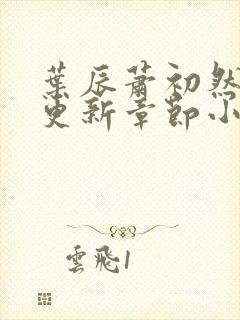 葉辰蕭初然
更新章節小
雲飛1